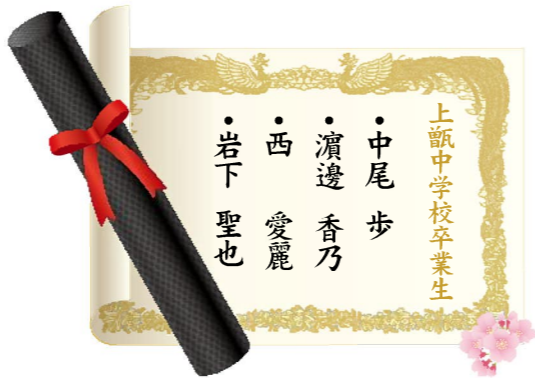 上甑中学校卒業生
・中尾 歩
・濵邊 香乃
・西 愛麗
・岩下 聖也